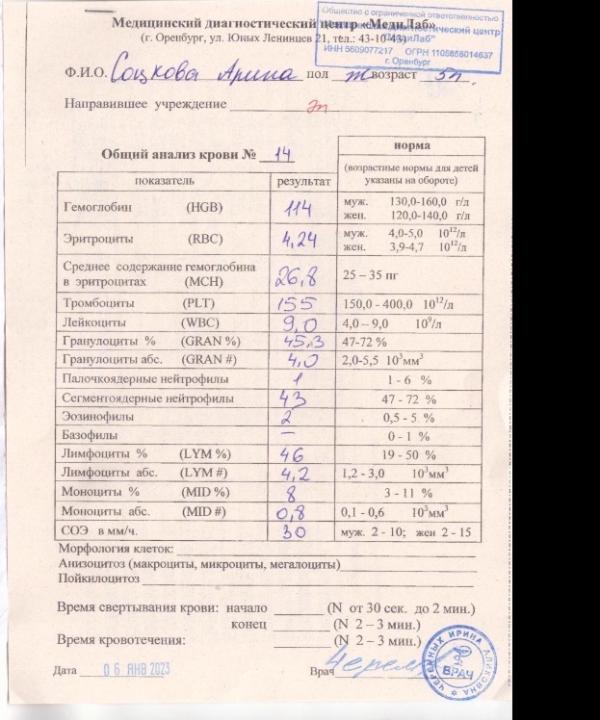 Медицинский диагностический центр «МедиЛаб»
(г. Оренбург, ул. Юных Ленинцев 21, тел.: 43-10-43)
Общество с ограниченной ответственностью
диагностический центр
"МедиЛаб"
ИНН 5609077217 ОГРН 1105658014637
г. Оренбург
Ф.И.О. Соцкова Арина пол ж возраст 5л.
Направившее учреждение эп
Общий анализ крови № 14
норма
(возрастные нормы для детей указаны на обороте)
показатель результат
Гемоглобин (HGB) 114 муж. 130,0-160,0 г/л
жен. 120,0-140,0 г/л
Эритроциты (RBC) 4,24 муж. 4,0-5,0 10¹²/л
жен. 3,9-4,7 10¹²/л
Среднее содержание гемоглобина
в эритроцитах (MCH) 26,8 25 – 35 пг
Тромбоциты (PLT) 155 150,0 - 400,0 10¹²/л
Лейкоциты (WBC) 9,0 4,0 – 9,0 10⁹/л
Гранулоциты % (GRAN %) 45,3 47-72 %
Гранулоциты абс. (GRAN #) 4,0 2,0-5,5 10³мм³
Палочкоядерные нейтрофилы 1 1 - 6 %
Сегментоядерные нейтрофилы 43 47 - 72 %
Эозинофилы 2 0,5 - 5 %
Базофилы – 0 - 1 %
Лимфоциты % (LYM %) 46 19 - 50 %
Лимфоциты абс. (LYM #) 4,2 1,2 - 3,0 10³мм³
Моноциты % (MID %) 8 3 - 11 %
Моноциты абс. (MID #) 0,8 0,1 - 0,6 10³мм³
СОЭ в мм/ч. 30 муж. 2 - 10; жен 2 - 15
Морфология клеток:
Анизоцитоз (макроциты, микроциты, мегалоциты)
Пойкилоцитоз
Время свертывания крови: начало (N от 30 сек. до 2 мин.)
конец (N 2 – 3 мин.)
Время кровотечения: (N 2 – 3 мин.)
Дата 06 ЯНВ 2023 Врач Черемных
ЧЕРЕМНЫХ ИРИНА
ВРАЧ